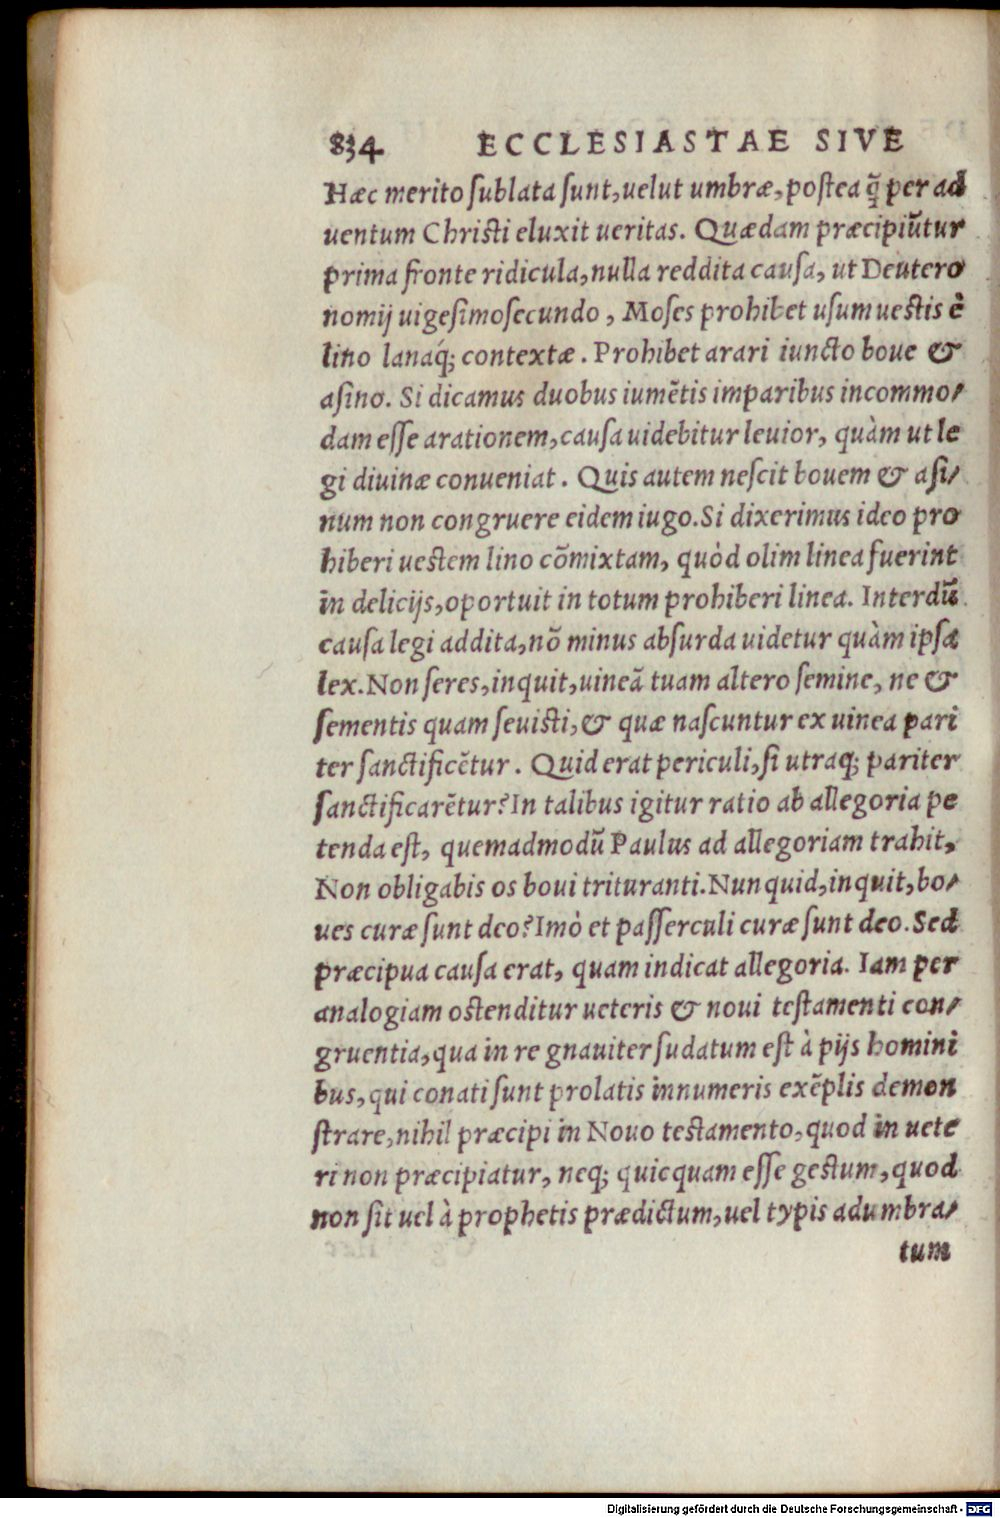 834 ECCLESIASTAE SIVE
Hæc merito sublata sunt, uelut umbræ, postea q̃ per ad
uentum Christi eluxit ueritas. Quædam præcipiũtur
prima fronte ridicula, nulla reddita causa, ut Deutero
nomij uigesimosecundo, Moses prohibet usum uestis è
lino lanaq́; contextæ. Prohibet arari iuncto boue &
asino. Si dicamus duobus iumẽtis imparibus incommo/
dam esse arationem, causa uidebitur leuior, quàm ut le
gi diuinæ conueniat. Quis autem nescit bouem & asi/
num non congruere eidem iugo. Si dixerimus ideo pro
hiberi uestem lino cõmixtam, quòd olim linea fuerint
in delicijs, oportuit in totum prohiberi linea. Interdũ
causa legi addita, nõ minus absurda uidetur quàm ipsa
lex. Non seres, inquit, uineã tuam altero semine, ne &
sementis quam seuisti, & quæ nascuntur ex uinea pari
ter sanctificẽtur. Quid erat periculi, si utraq; pariter
sanctificarẽtur? In talibus igitur ratio ab allegoria pe
tenda est, quemadmodũ Paulus ad allegoriam trahit,
Non obligabis os boui trituranti. Nunquid, inquit, bo/
ues curæ sunt deo? Imò et passerculi curæ sunt deo. Sed
præcipua causa erat, quam indicat allegoria. Iam per
analogiam ostenditur ueteris & noui testamenti con/
gruentia, qua in re gnauiter sudatum est à pijs homini
bus, qui conati sunt prolatis innumeris exẽplis demon
strare, nihil præcipi in Nouo testamento, quod in uete
ri non præcipiatur, neq; quicquam esse gestum, quod
non sit uel à prophetis prædictum, uel typis adumbra/
tum
Digitalisierung gefördert durch die Deutsche Forschungsgemeinschaft - DFG